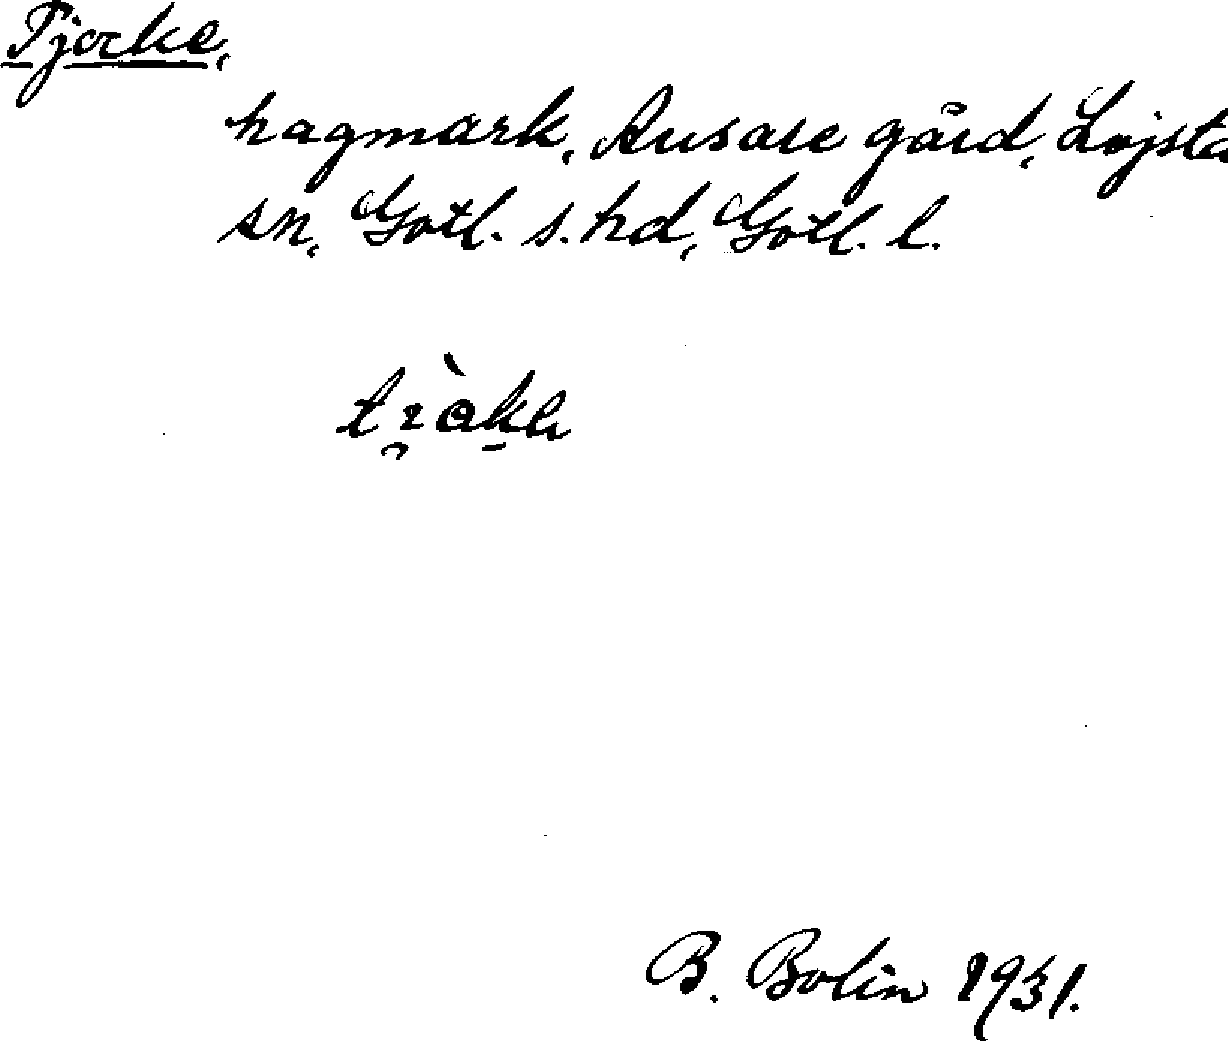 Tjorke,
hagmark, Ausare gård, Lojsta
sn, Gotl. s. hd, Gotl. l.
B. Bolin 1931.